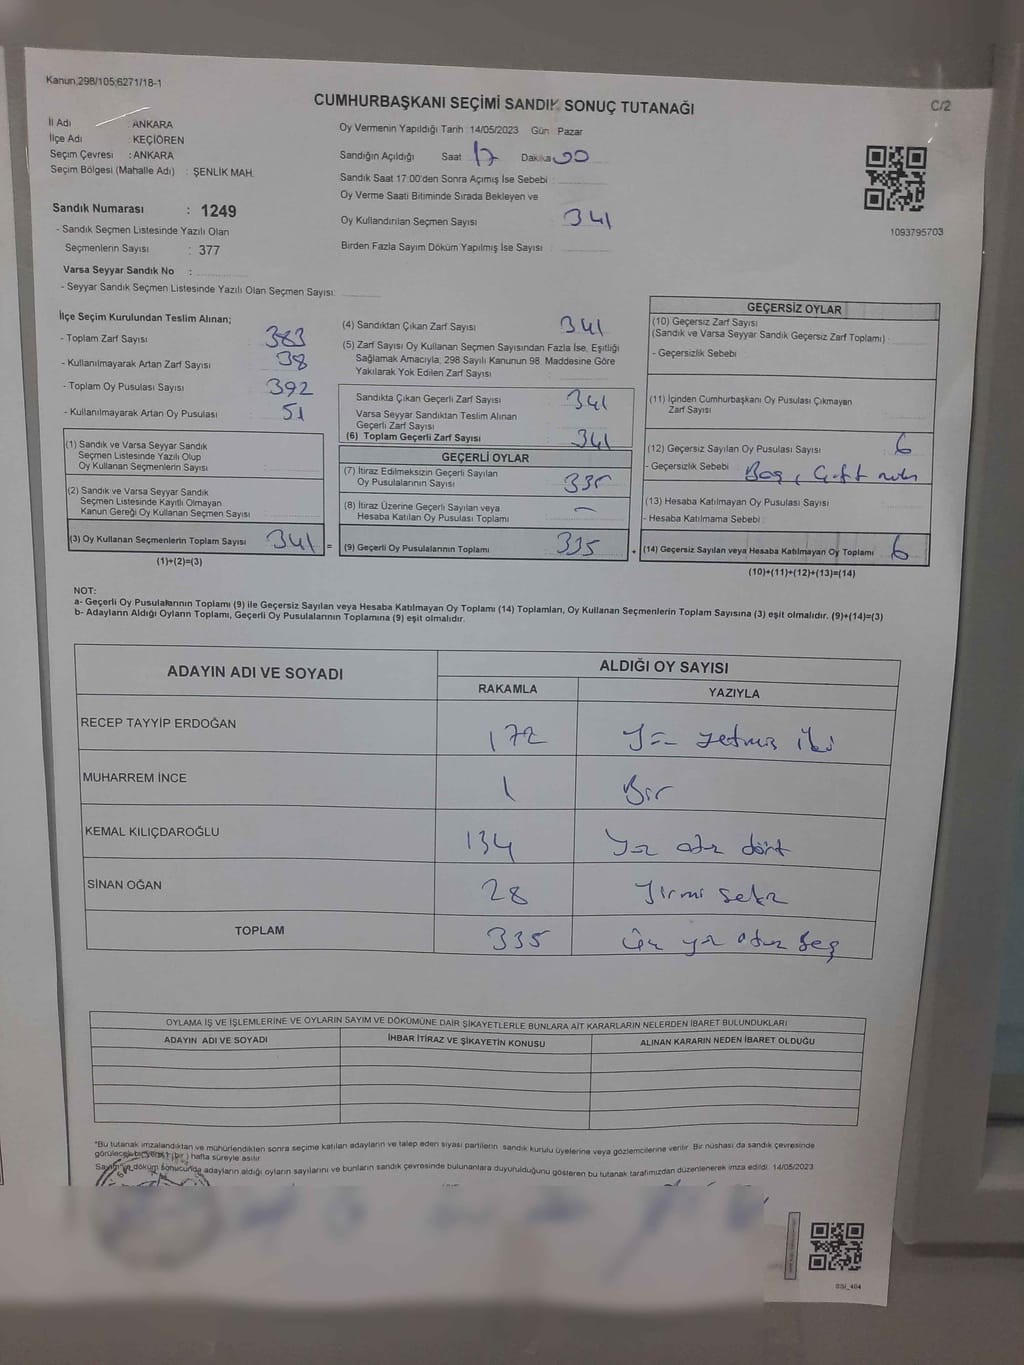 Kanun,298/105;6271/18-1
CUMHURBAŞKANI SEÇİMİ SANDIK SONUÇ TUTANAĞI
C/2
İl Adı : ANKARA
İlçe Adı : KEÇİÖREN
Seçim Çevresi : ANKARA
Seçim Bölgesi (Mahalle Adı) : ŞENLİK MAH.
Sandık Numarası : 1249
- Sandık Seçmen Listesinde Yazılı Olan
Seçmenlerin Sayısı : 377
Varsa Seyyar Sandık No :
- Seyyar Sandık Seçmen Listesinde Yazılı Olan Seçmen Sayısı:
Oy Vermenin Yapıldığı Tarih :14/05/2023 Gün : Pazar
Sandığın Açıldığı Saat 17 Dakika 00
Sandık Saat 17:00'den Sonra Açılmış İse Sebebi :
Oy Verme Saati Bitiminde Sırada Bekleyen ve
Oy Kullandırılan Seçmen Sayısı 341
Birden Fazla Sayım Döküm Yapılmış İse Sayısı :
1093795703
İlçe Seçim Kurulundan Teslim Alınan;
- Toplam Zarf Sayısı 383
- Kullanılmayarak Artan Zarf Sayısı 38
- Toplam Oy Pusulası Sayısı 392
- Kullanılmayarak Artan Oy Pusulası 51
(1) Sandık ve Varsa Seyyar Sandık
Seçmen Listesinde Yazılı Olup
Oy Kullanan Seçmenlerin Sayısı
(2) Sandık ve Varsa Seyyar Sandık
Seçmen Listesinde Kayıtlı Olmayan
Kanun Gereği Oy Kullanan Seçmen Sayısı
(3) Oy Kullanan Seçmenlerin Toplam Sayısı 341
(1)+(2)=(3)
(4) Sandıktan Çıkan Zarf Sayısı 341
(5) Zarf Sayısı Oy Kullanan Seçmen Sayısından Fazla İse, Eşitliği
Sağlamak Amacıyla, 298 Sayılı Kanunun 98. Maddesine Göre
Yakılarak Yok Edilen Zarf Sayısı
Sandıkta Çıkan Geçerli Zarf Sayısı 341
Varsa Seyyar Sandıktan Teslim Alınan
Geçerli Zarf Sayısı
(6) Toplam Geçerli Zarf Sayısı 341
GEÇERLİ OYLAR
(7) İtiraz Edilmeksizin Geçerli Sayılan
Oy Pusulalarının Sayısı 335
(8) İtiraz Üzerine Geçerli Sayılan veya
Hesaba Katılan Oy Pusulası Toplamı -
= (9) Geçerli Oy Pusulalarının Toplamı 335
GEÇERSİZ OYLAR
(10) Geçersiz Zarf Sayısı
(Sandık ve Varsa Seyyar Sandık Geçersiz Zarf Toplamı)
- Geçersizlik Sebebi
(11) İçinden Cumhurbaşkanı Oy Pusulası Çıkmayan
Zarf Sayısı
(12) Geçersiz Sayılan Oy Pusulası Sayısı 6
- Geçersizlik Sebebi : Boş, Çift
(13) Hesaba Katılmayan Oy Pusulası Sayısı
- Hesaba Katılmama Sebebi :
+ (14) Geçersiz Sayılan veya Hesaba Katılmayan Oy Toplamı 6
(10)+(11)+(12)+(13)=(14)
NOT:
a- Geçerli Oy Pusulalarının Toplamı (9) ile Geçersiz Sayılan veya Hesaba Katılmayan Oy Toplamı (14) Toplamları, Oy Kullanan Seçmenlerin Toplam Sayısına (3) eşit olmalıdır. (9)+(14)=(3)
b- Adayların Aldığı Oyların Toplamı, Geçerli Oy Pusulalarının Toplamına (9) eşit olmalıdır.
ADAYIN ADI VE SOYADI ALDIĞI OY SAYISI
RAKAMLA YAZIYLA
RECEP TAYYİP ERDOĞAN 172 Yüz yetmiş iki
MUHARREM İNCE 1 Bir
KEMAL KILIÇDAROĞLU 134 Yüz otuz dört
SİNAN OĞAN 28 Yirmi sekiz
TOPLAM 335 Üç yüz otuz beş
OYLAMA İŞ VE İŞLEMLERİNE VE OYLARIN SAYIM VE DÖKÜMÜNE DAİR ŞİKAYETLERLE BUNLARA AİT KARARLARIN NELERDEN İBARET BULUNDUKLARI
ADAYIN ADI VE SOYADI İHBAR İTİRAZ VE ŞİKAYETİN KONUSU ALINAN KARARIN NEDEN İBARET OLDUĞU
*Bu tutanak imzalandıktan ve mühürlendikten sonra seçime katılan adayların ve talep eden siyasi partilerin sandık kurulu üyelerine veya gözlemcilerine verilir. Bir nüshası da sandık çevresinde
görülecek bir yere 1 (bir) hafta süreyle asılır.
Sayım ve döküm sonucunda adayların aldığı oyların sayılarını ve bunların sandık çevresinde bulunanlara duyurulduğunu gösteren bu tutanak tarafımızdan düzenlenerek imza edildi. 14/05/2023